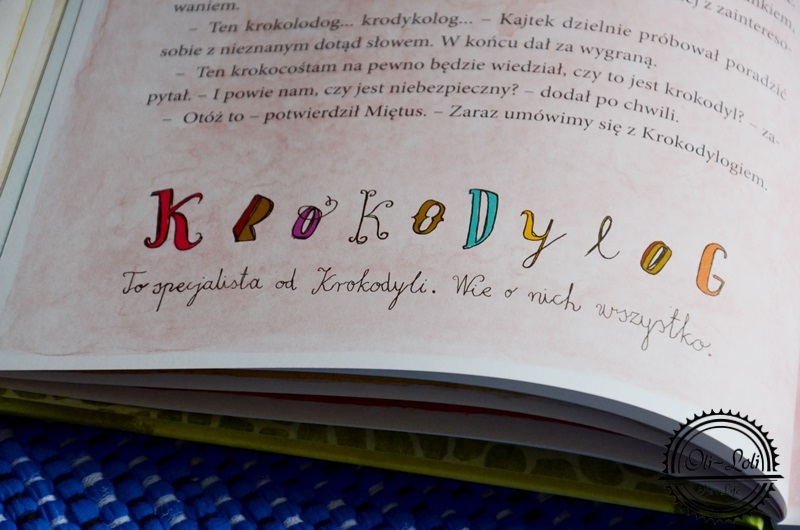 waniem.
– Ten krokolodog... krodykolog... – Kajtek dzielnie próbował poradzić
sobie z nieznanym dotąd słowem. W końcu dał za wygraną.
– Ten krokocośtam na pewno będzie wiedział, czy to jest krokodyl? – za-
pytał. – I powie nam, czy jest niebezpieczny? – dodał po chwili.
– Otóż to – potwierdził Miętus. – Zaraz umówimy się z Krokodylogiem.
KRoKoDyloG
To specjalista od Krokodyli. Wie o nich wszystko.
Oli-Loli